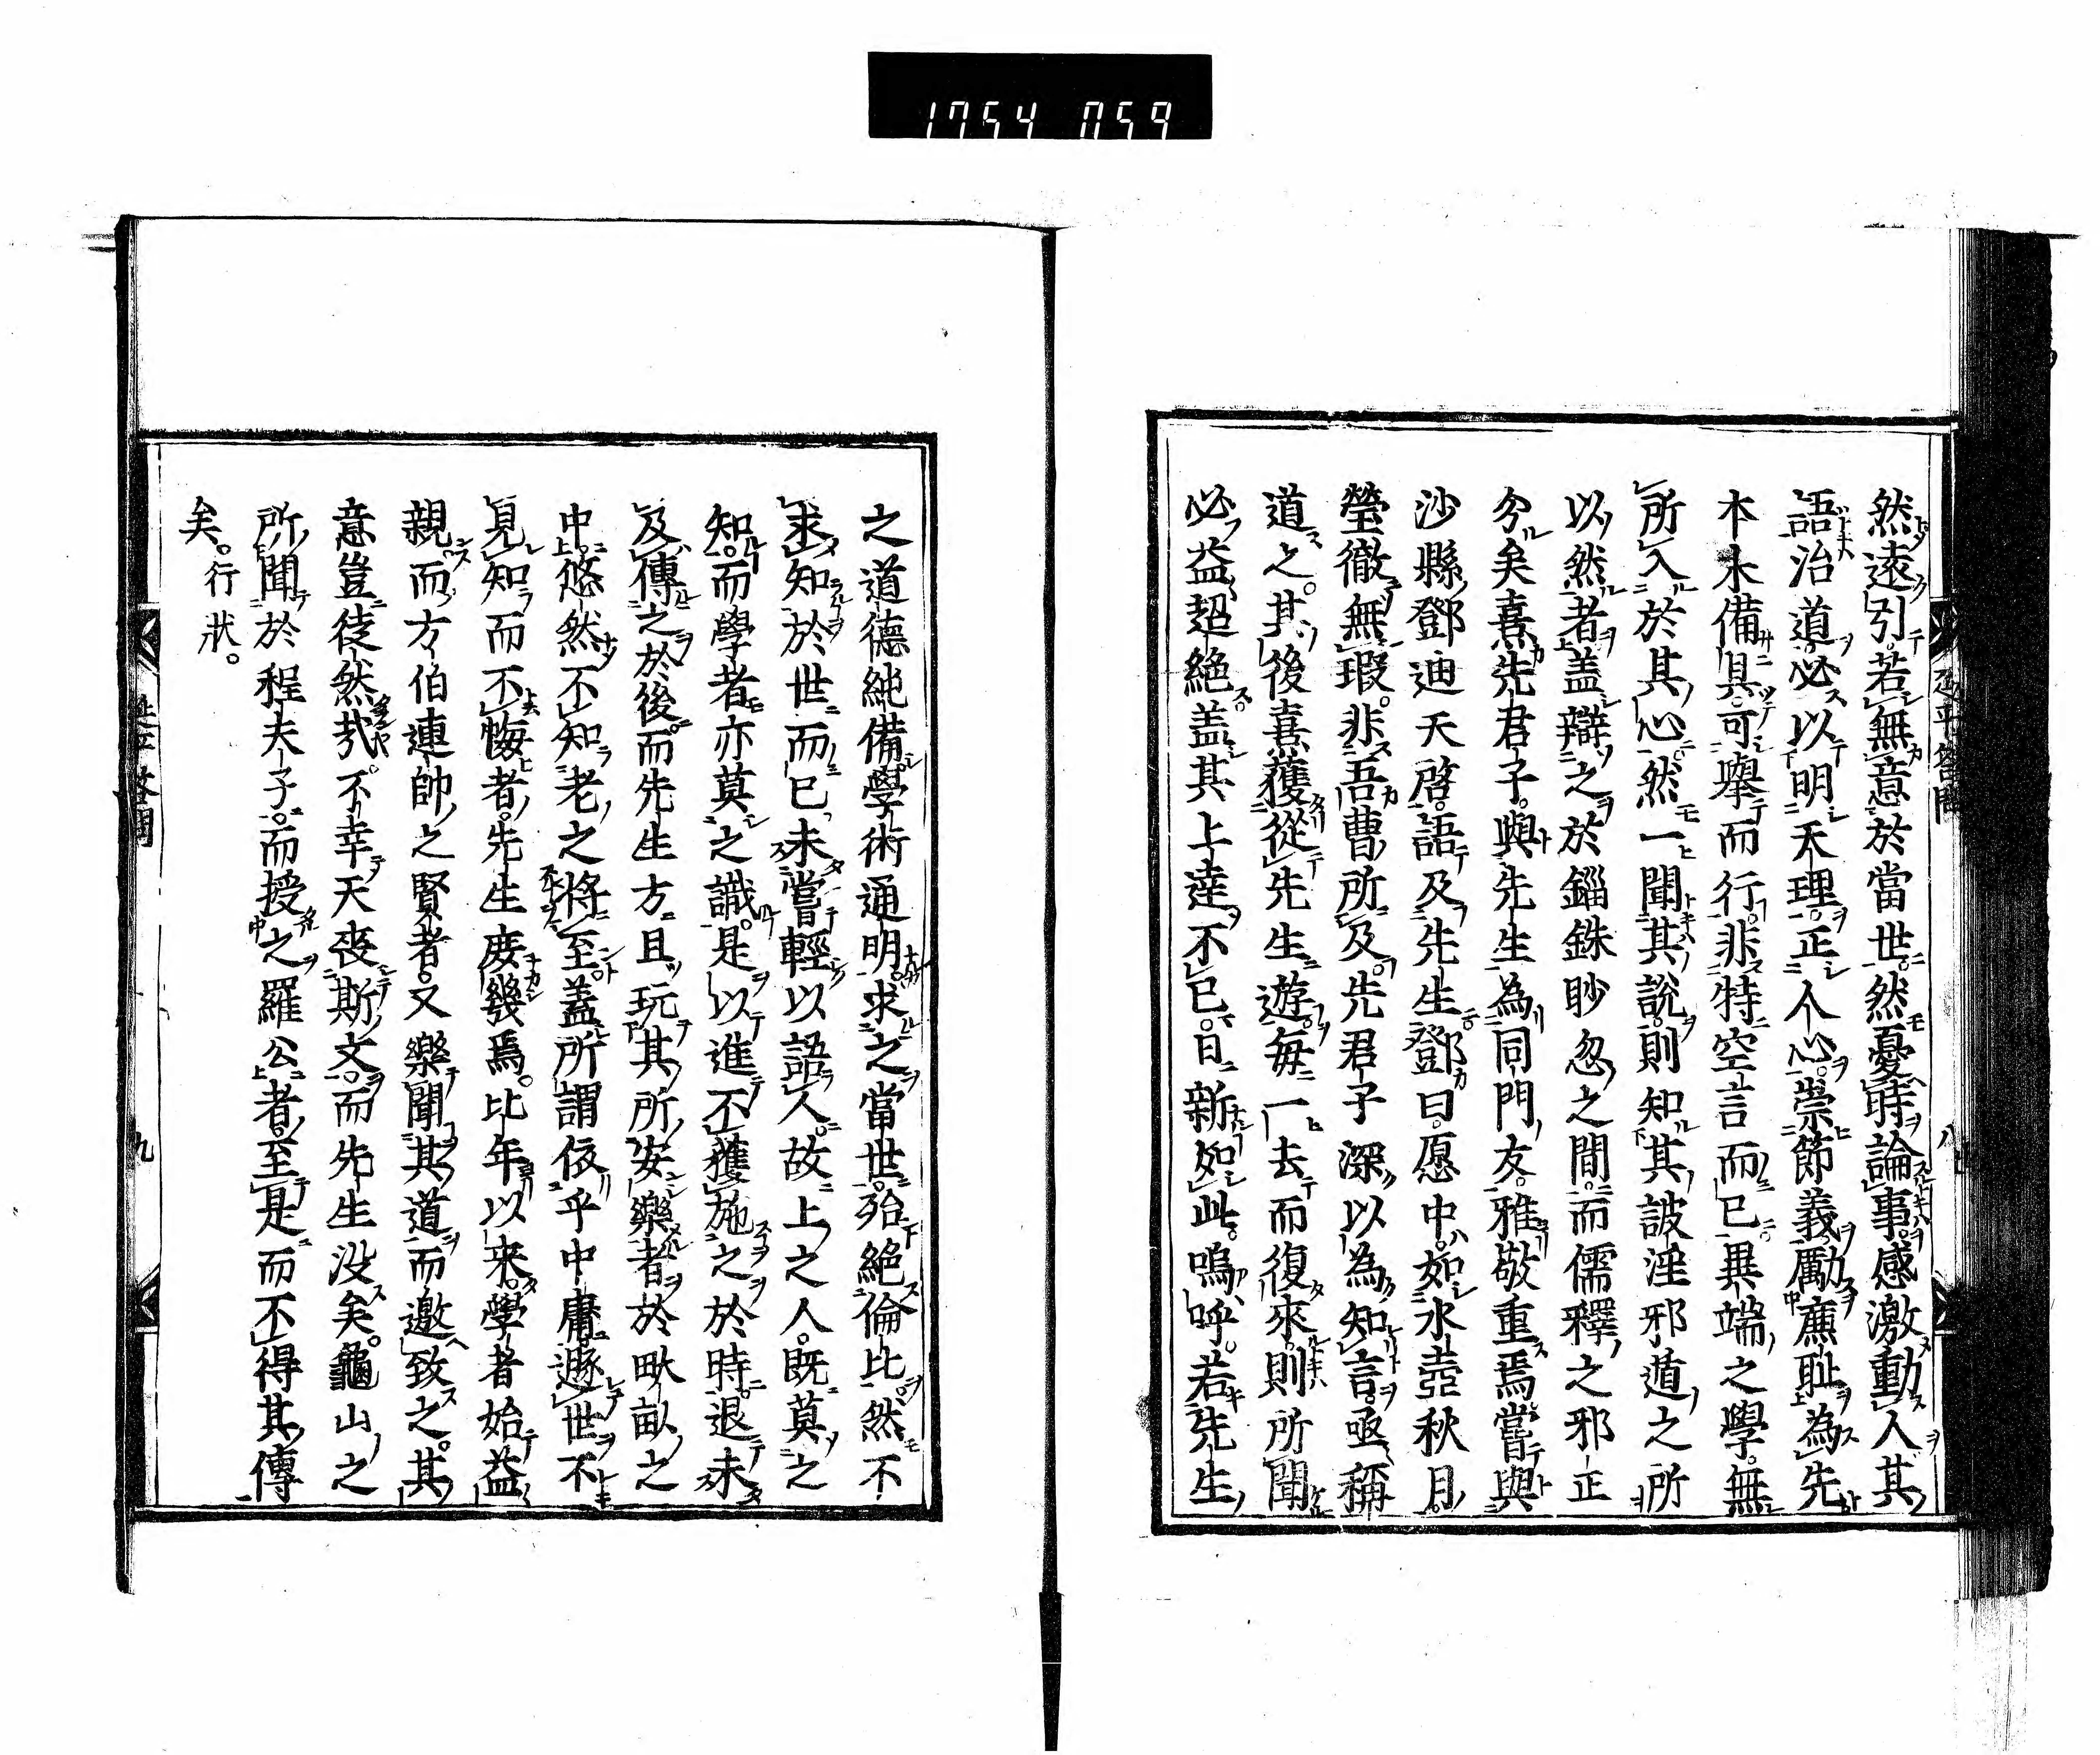 1754 059
然遠引若無意於當世然憂時論事感激動人其
語治道必以明天理正人心崇節義勵廉耻為先
本末備具可擧而行非特空言而已異端之學無
所入於其心然一聞其說則知其詖淫邪遁之所
以然者盖辯之於錙銖眇忽之間而儒釋之邪正
分矣熹先君子與先生為同門友雅敬重焉嘗與
沙縣鄧迪天啓語及先生鄧曰愿中如氷壺秋月
瑩徹無瑕非吾曹所及先君子深以為知言亟稱
道之其後熹獲從先生遊每一去而復來則所聞
必益超絕盖其上達不已日新如此嗚呼若先生
之道德純備學術通明求之當世殆絕倫比然不
求知於世而已未嘗輕以語人故上之人既莫之
知而學者亦莫之識是以進不獲施之於時退未
及傳之於後而先生方且玩其所安樂者於畎畝之
中悠然不知老之將至盖所謂依乎中庸遯世不
見知而不悔者先生庻幾焉比年以来學者始益
親而方伯連帥之賢者又樂聞其道而邀致之其
意豈徒然㢤不幸天喪斯文而先生没矣龜山之
所聞於程夫子而授之羅公者至是而不得其傳
矣。行狀。
延平答問
八
九